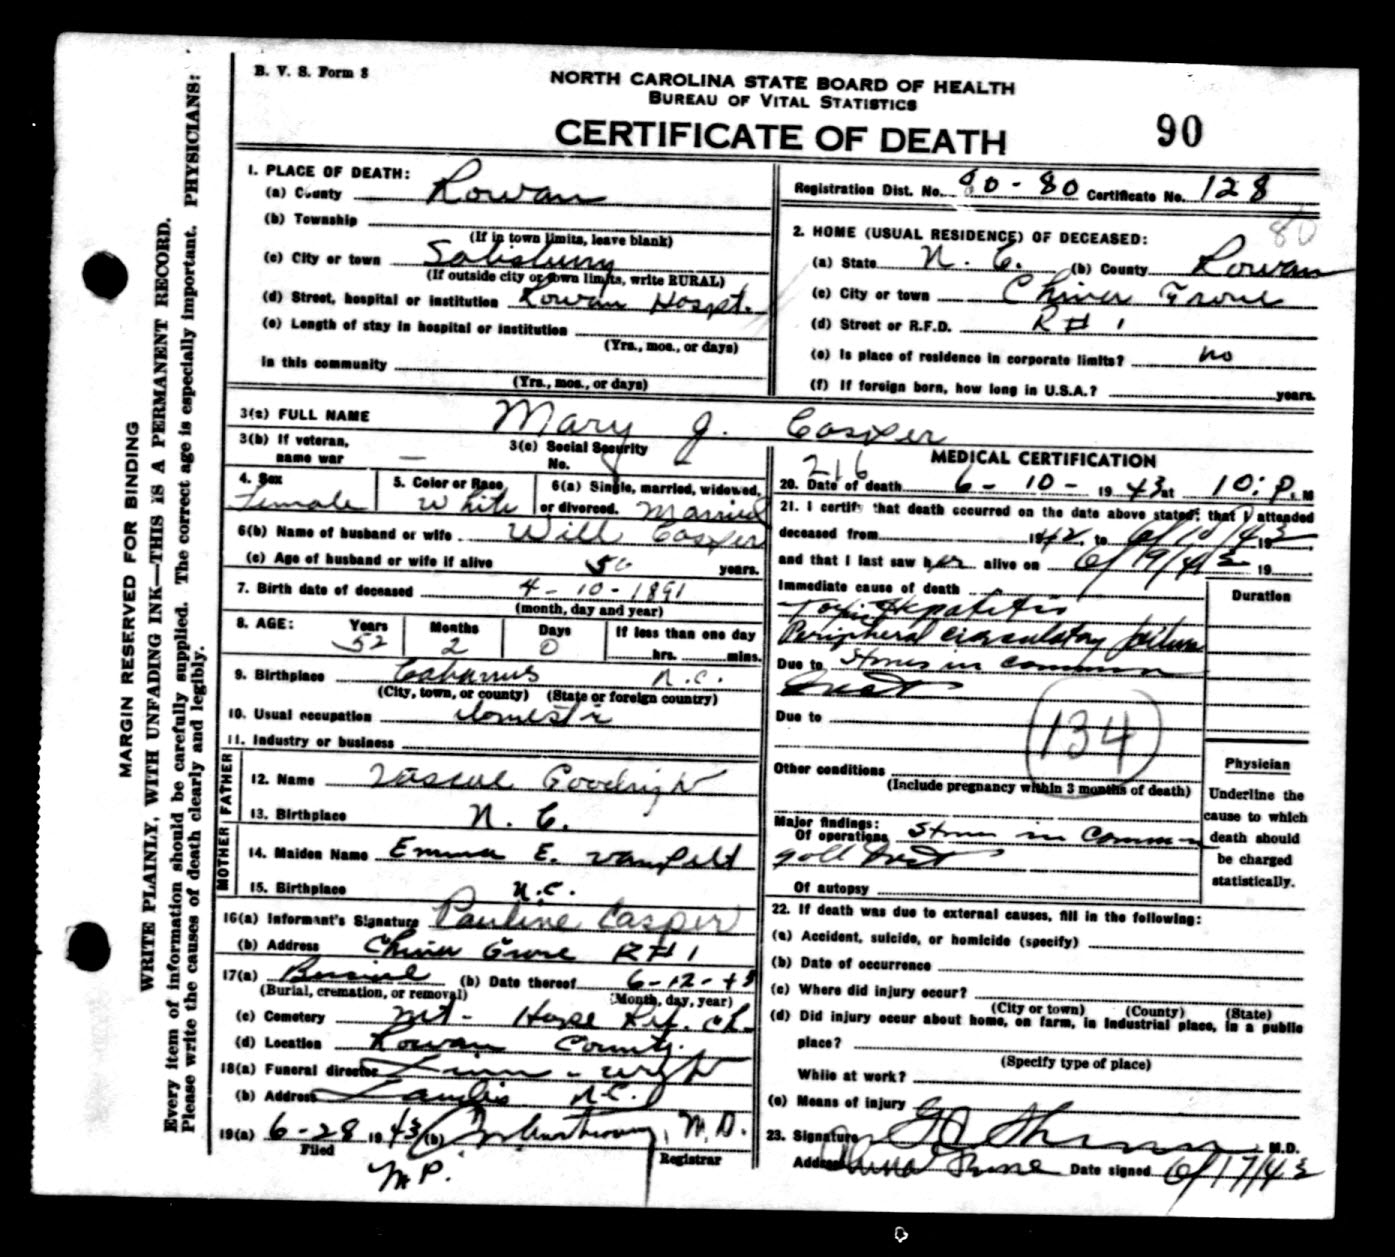 B. V. S. Form 8
NORTH CAROLINA STATE BOARD OF HEALTH
BUREAU OF VITAL STATISTICS
CERTIFICATE OF DEATH
90
MARGIN RESERVED FOR BINDING
WRITE PLAINLY, WITH UNFADING INK—THIS IS A PERMANENT RECORD.
Every item of information should be carefully supplied. The correct age is especially important. PHYSICIANS:
Please write the causes of death clearly and legibly.
1. PLACE OF DEATH:
(a) County Rowan
(b) Township
(If in town limits, leave blank)
(c) City or town Salisbury
(If outside city or town limits, write RURAL)
(d) Street, hospital or institution Rowan Hospt.
(e) Length of stay in hospital or institution
(Yrs., mos., or days)
In this community
(Yrs., mos., or days)
Registration Dist. No. 80-80 Certificate No. 128
80
2. HOME (USUAL RESIDENCE) OF DECEASED:
(a) State N. C. (b) County Rowan
(c) City or town China Grove
(d) Street or R.F.D. R # 1
(e) Is place of residence in corporate limits? no
(f) If foreign born, how long in U.S.A.? years.
3(a) FULL NAME Mary J. Casper
3(b) If veteran, name war —
3(c) Social Security No.
4. Sex Female
5. Color or Race White
6(a) Single, married, widowed, or divorced. Married
6(b) Name of husband or wife Will Casper
(c) Age of husband or wife if alive years.
7. Birth date of deceased 4-10-1891
(month, day and year)
8. AGE: Years 52 Months 2 Days 0 If less than one day hrs. mins.
9. Birthplace Cabarrus N.C.
(City, town, or county) (State or foreign country)
10. Usual occupation domestic
11. Industry or business
FATHER
12. Name Goodnight
13. Birthplace N. C.
MOTHER
14. Maiden Name Emma E. Vanpelt
15. Birthplace N.C.
16(a) Informant's Signature Pauline Casper
(b) Address China Grove R # 1
17(a) Burial (b) Date thereof 6-12-43
(Burial, cremation, or removal) (Month, day, year)
(c) Cemetery Mt. Hope Ref. Ch.
(d) Location Rowan County.
18(a) Funeral director
(b) Address Landis N.C.
19(a) 6-28 1943 (b) M.D.
Filed Registrar
MEDICAL CERTIFICATION
216
20. Date of death 6-10- 1943 at 10: P. M
21. I certify that death occurred on the date above stated; that I attended
deceased from 1942, to 6/10/43 19
and that I last saw her alive on 6/19/43 19
Immediate cause of death
Toxic Hepatitis
Peripheral circulatory failure
Due to Stones in common
duct
Due to
134
Other conditions
(Include pregnancy within 3 months of death)
Major findings:
Of operations Stones in common
gall duct
Of autopsy
Duration
Physician
Underline the
cause to which
death should
be charged
statistically.
22. If death was due to external causes, fill in the following:
(a) Accident, suicide, or homicide (specify)
(b) Date of occurrence
(c) Where did injury occur?
(City or town) (County) (State)
(d) Did injury occur about home, on farm, in industrial place, in a public
place?
(Specify type of place)
While at work?
(e) Means of injury
23. Signature M.D.
Address China Grove Date signed 6/17/43